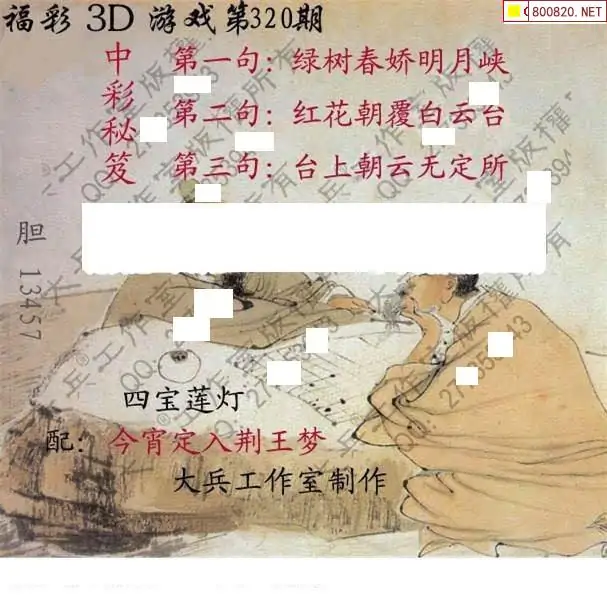 福彩 3D 游戏第320期
800820.NET
中彩秘笈
第一句：绿树春娇明月峡
第二句：红花朝覆白云台
第三句：台上朝云无定所
胆 13457
四宝莲灯
配：今宵定入荆王梦
大兵工作室制作